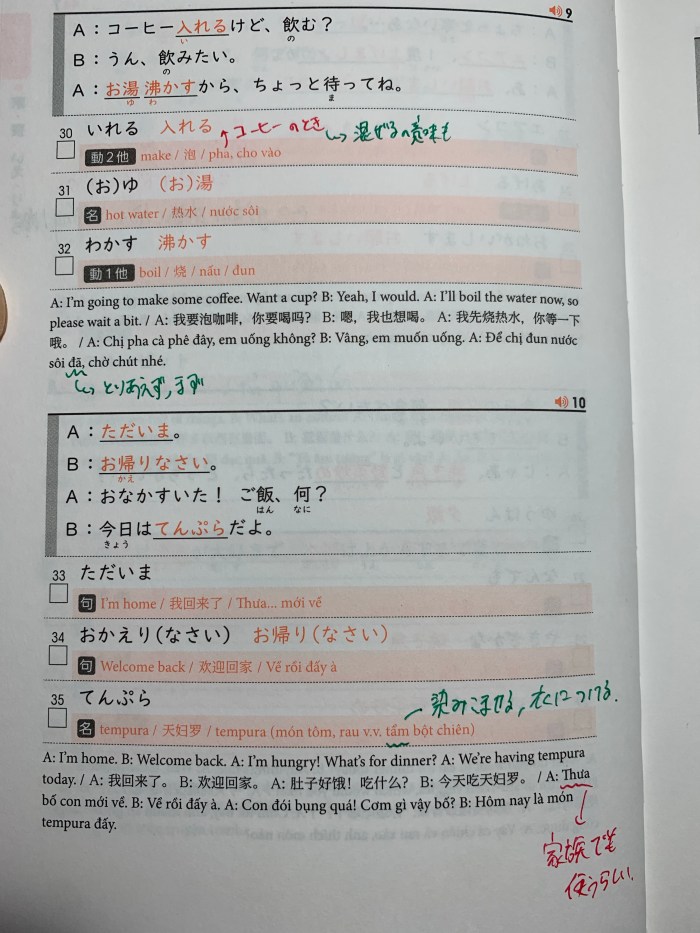 9
A：コーヒー入れるけど、飲む？
い の
B：うん、飲みたい。
の
A：お湯 沸かすから、ちょっと待ってね。
ゆ わ ま
30 いれる 入れる ↑コーヒーのとき ↳ 混ぜるの意味も
動2他 make / 泡 / pha, cho vào
31 (お)ゆ (お)湯
名 hot water / 热水 / nước sôi
32 わかす 沸かす
動1他 boil / 烧 / nấu / đun
A: I'm going to make some coffee. Want a cup? B: Yeah, I would. A: I'll boil the water now, so
please wait a bit. / A: 我要泡咖啡，你要喝吗？ B: 嗯，我也想喝。 A: 我先烧热水，你等一下
哦。 / A: Chị pha cà phê đây, em uống không? B: Vâng, em muốn uống. A: Để chị đun nước
sôi đã, chờ chút nhé.
↳ とりあえず,まず
10
A：ただいま。
B：お帰りなさい。
かえ
A：おなかすいた！ ご飯、何？
はん なに
B：今日はてんぷらだよ。
きょう
33 ただいま
句 I'm home / 我回来了 / Thưa... mới về
34 おかえり(なさい) お帰り(なさい)
句 Welcome back / 欢迎回家 / Về rồi đấy à
35 てんぷら
染みこませる, 衣につける.
名 tempura / 天妇罗 / tempura (món tôm, rau v.v. tẩm bột chiên)
A: I'm home. B: Welcome back. A: I'm hungry! What's for dinner? A: We're having tempura
today. / A: 我回来了。 B: 欢迎回家。 A: 肚子好饿！吃什么？ B: 今天吃天妇罗。 / A: Thưa
bố con mới về. B: Về rồi đấy à. A: Con đói bụng quá! Cơm gì vậy bố? B: Hôm nay là món
tempura đấy.
家族でも
使うらしい.